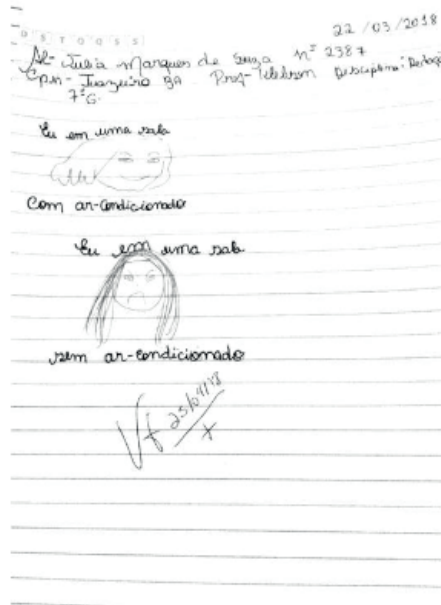 22/03/2018
D S T Q Q S S
Al- Julia Marques de Souza nº 2387
Cpm- Juazeiro Ba Prof- Desciplina: Redaçã
7ºG.
Eu em uma sala
Com ar-condicionado
Eu em uma sala
sem ar-condicionado
25/04/18